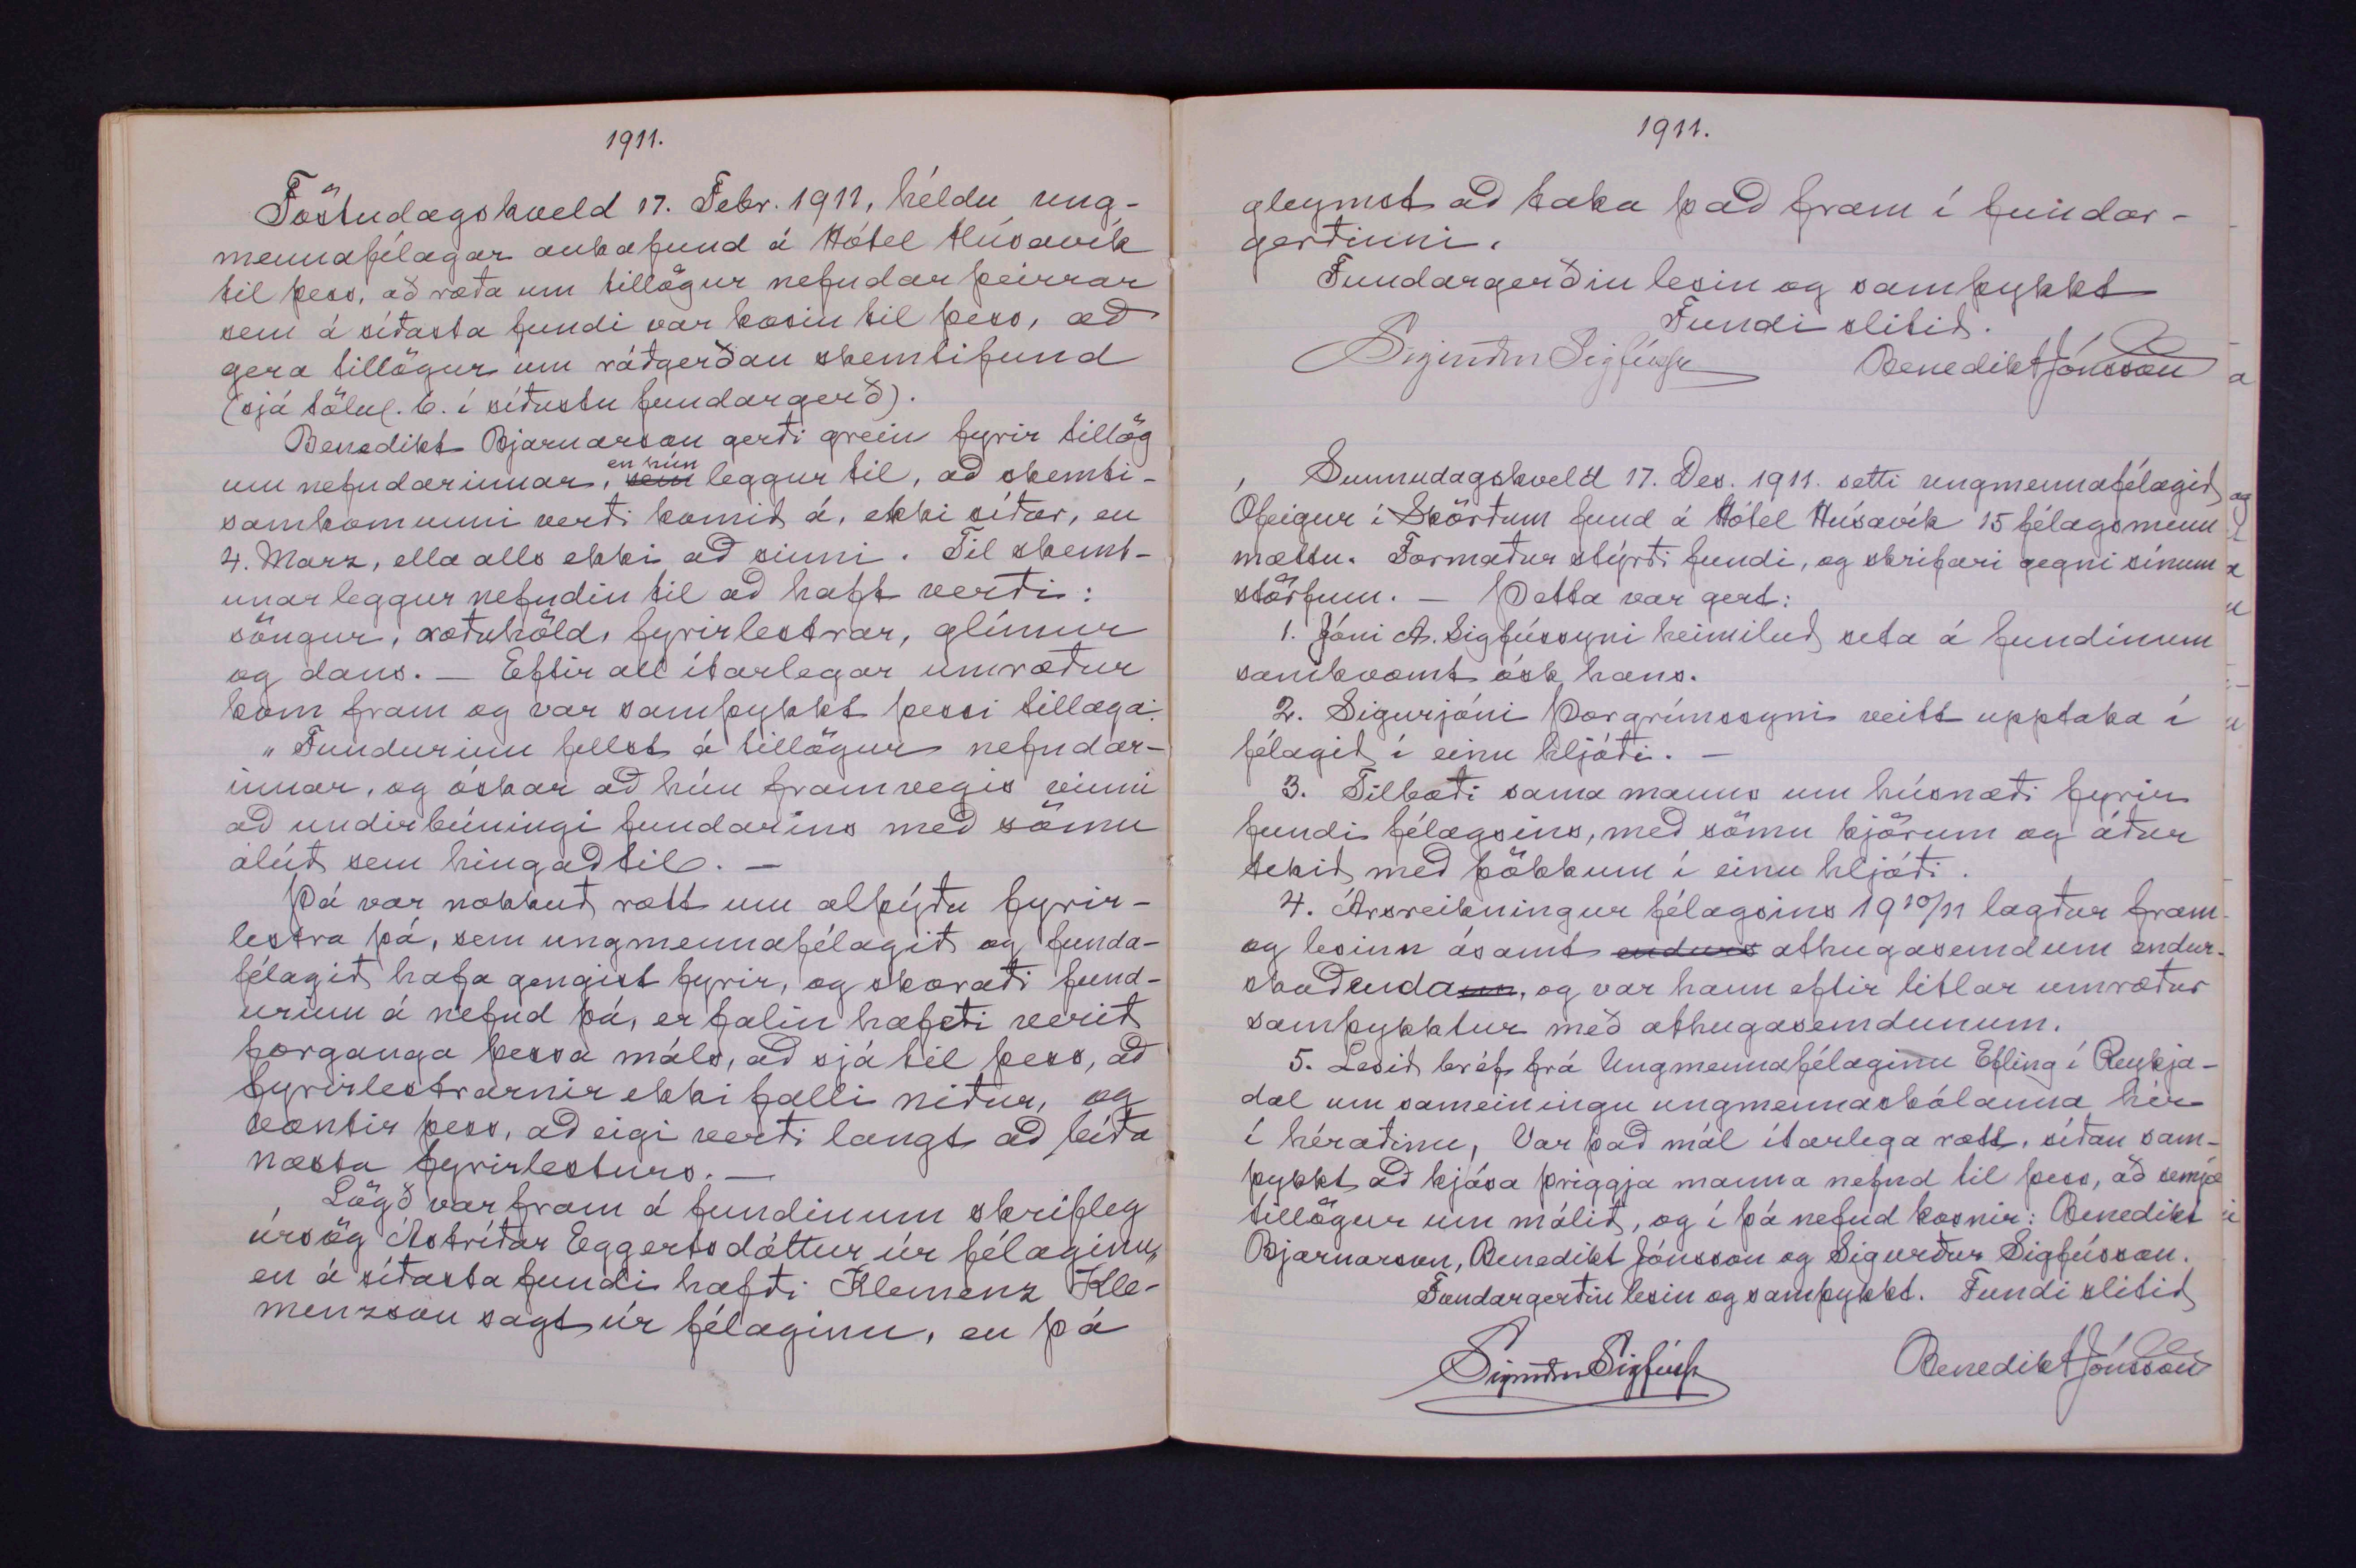 1911.
Föstudagskveld 17. Febr. 1911, héldu ung-
mennafélagar aukafund á Hótel Húsavík
til þess, að ræða um tillögur nefndar þeirrar
sem á síðasta fundi var kosin til þess, að
gera tillögur um ráðgerðan skemtifund
(sjá tölul. 6. í síðustu fundargerð).
Benedikt Bjarnarson gerði grein fyrir tillög
um nefndarinnar, sem en hún leggur til, að skemti-
samkomunni verði komið á, ekki síðar, en
4. Marz, ella alls ekki að sinni. Til skemt-
unar leggur nefndin til að haft verði:
söngur, ræðuhöld, fyrirlestrar, glímur
og dans. — Eftir all ítarlegar umræður
kom fram og var samþykkt þessi tillaga:
„Fundurinn fellst á tillögur nefndar-
innar, og óskar að hún framvegis vinni
að undirbúningi fundarins með sömu
alúð sem hingað til. —
Þá var nokkuð rætt um alþýðu fyrir-
lestra þá, sem ungmennafélagið og funda-
félagið hafa gengist fyrir, og skoraði fund-
urinn á nefnd þá, er falin hafði verið
forganga þessa máls, að sjá til þess, að
fyrirlestrarnir ekki falli niður, og
væntir þess, að eigi verði langt að bíða
næsta fyrirlesturs. —
Lögð var fram á fundinum skrifleg
úrsög Ástríðar Eggertsdóttur úr félaginu,
en á síðasta fundi hafði Klemenz Kle-
menzson sagt úr félaginu, en þá
1911.
gleymst að taka það fram í fundar-
gerðinni.
Fundargerðin lesin og samþykkt
Fundi slitið.
Sigurður Sigfúss. Benedikt Jónsson
Sunnudagskveld 17. Des. 1911. setti ungmennafélagið
Ófeigur í Skörðum fund á Hótel Húsavík 15 félagsmenn
mættu. Formaður stýrði fundi, og skrifari gegni sínum
störfum. — Þetta var gert:
1. Jóni A. Sigfússyni heimiluð seta á fundinum
samkvæmt ósk hans.
2. Sigurjóni Þorgrímssyni veitt upptaka í
félagið í einu hljóði. —
3. Tilboði sama manns um húsnæði fyrir
fundi félagsins, með sömu kjörum og áður
tekið með þökkum í einu hljóði.
4. Ársreikningur félagsins 1910/11 lagður fram
og lesinn ásamt endurs athugasemdum endur-
skoðendann, og var hann eftir litlar umræður
samþykktur með athugasemdunum.
5. Lesið bréf frá Ungmennafélaginu Efling í Reykja-
dal um sameiningu ungmennaskólanna hér
í héraðinu, Var það mál ítarlega rætt, síðan sam-
þykkt að kjósa þriggja manna nefnd til þess, að semja
tillögur um málið, og í þá nefnd kosnir: Benedikt
Bjarnarson, Benedikt Jónsson og Sigurður Sigfússon.
Fundargerðin lesin og samþykkt. Fundi slitið
Sigurður Sigfúss. Benedikt Jónsson